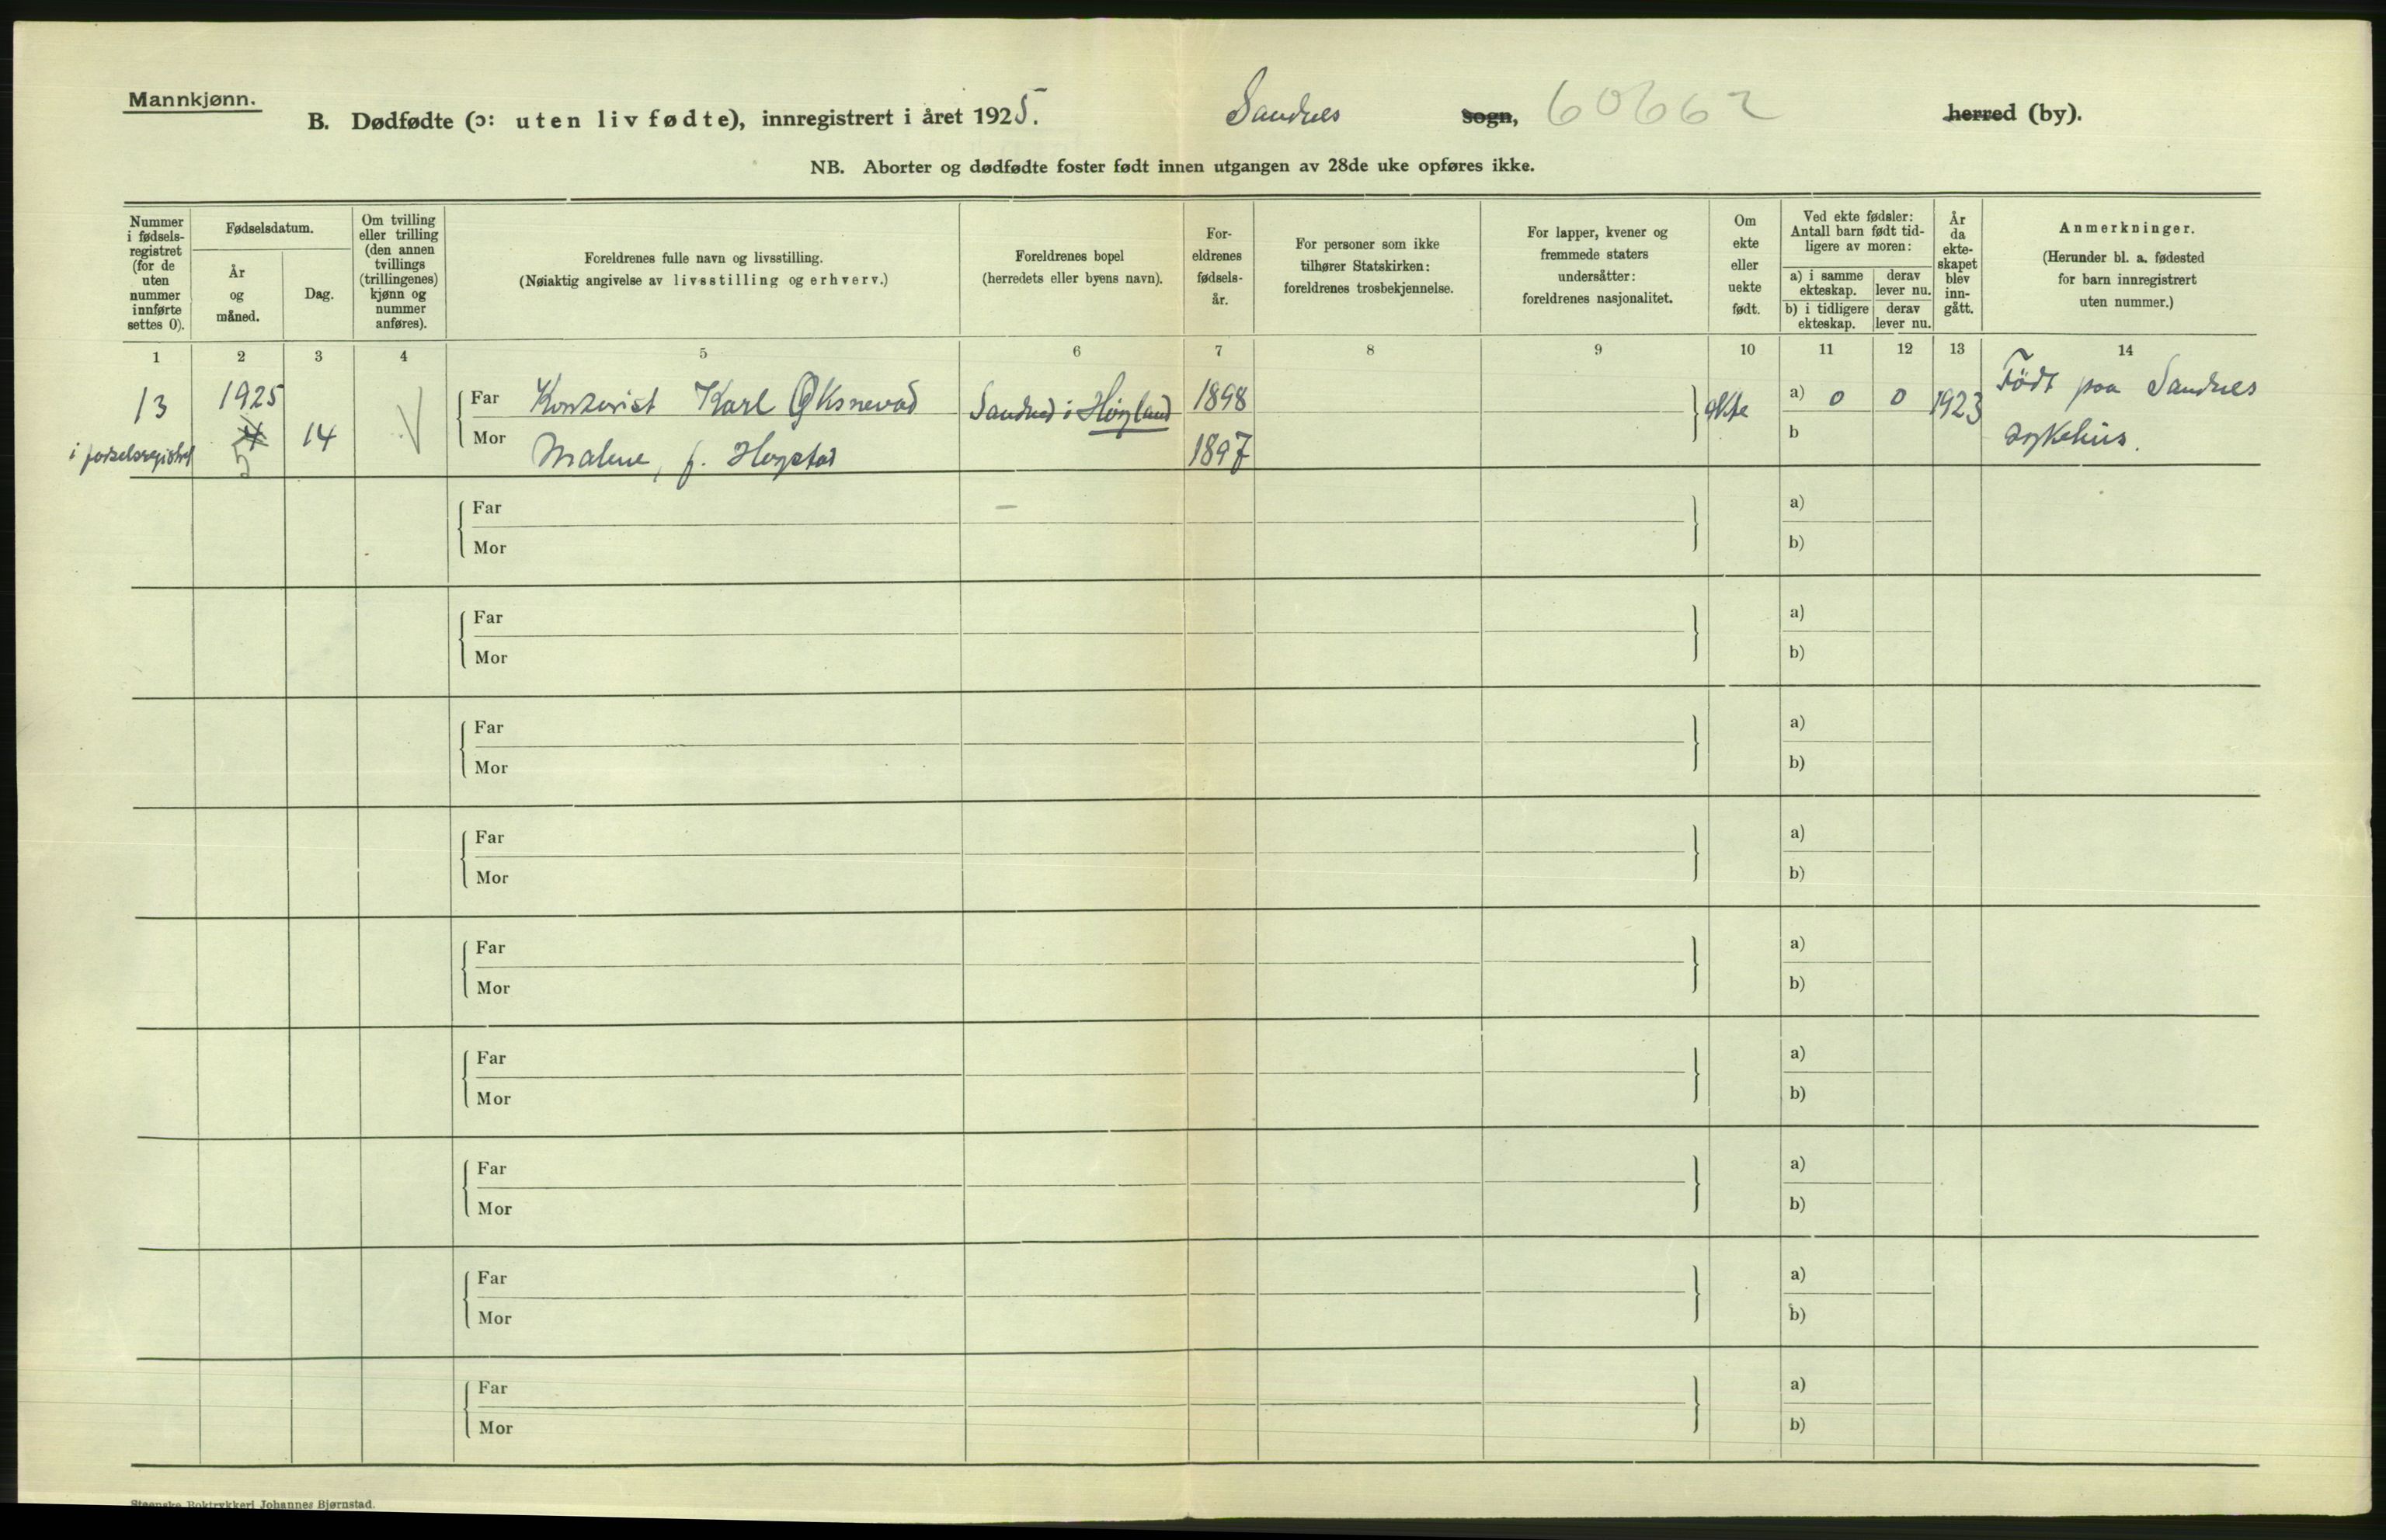 Mannkjønn.
B. Dødfødte (ɔ: uten liv fødte), innregistrert i året 1925. Sandnes sogn, 60662 herred (by).
NB. Aborter og dødfødte foster født innen utgangen av 28de uke opføres ikke.
Nummer i fødsels-registret (for de uten nummer innførte settes 0).
Fødselsdatum.
År og måned.
Dag.
Om tvilling eller trilling (den annen tvillings (trillingenes) kjønn og nummer anføres).
Foreldrenes fulle navn og livsstilling.
(Nøiaktig angivelse av livsstilling og erhverv.)
Foreldrenes bopel
(herredets eller byens navn).
For-eldrenes fødsels-år.
For personer som ikke tilhører Statskirken: foreldrenes trosbekjennelse.
For lapper, kvener og fremmede staters undersåtter: foreldrenes nasjonalitet.
Om ekte eller uekte født.
Ved ekte fødsler: Antall barn født tid-ligere av moren:
a) i samme ekteskap. derav lever nu.
b) i tidligere ekteskap. derav lever nu.
År da ekte-skapet blev inn-gått.
Anmerkninger.
(Herunder bl. a. fødested for barn innregistrert uten nummer.)
1 2 3 4 5 6 7 8 9 10 11 12 13 14
13 1925 Far Kontorist Karl Øksnevad Sandnes i Høyland 1898 ekte a) 0 0 1923 Födt paa Sandnes
i fødselsregistret 4 5 14 Mor Malene, f. Hogstad 1897 b sykehus.
Far a)
Mor b)
Far a)
Mor b)
Far a)
Mor b)
Far a)
Mor b)
Far a)
Mor b)
Far a)
Mor b)
Far a)
Mor b)
Far a)
Mor b)
Far a)
Mor b)
Steenske Boktrykkeri Johannes Bjørnstad.